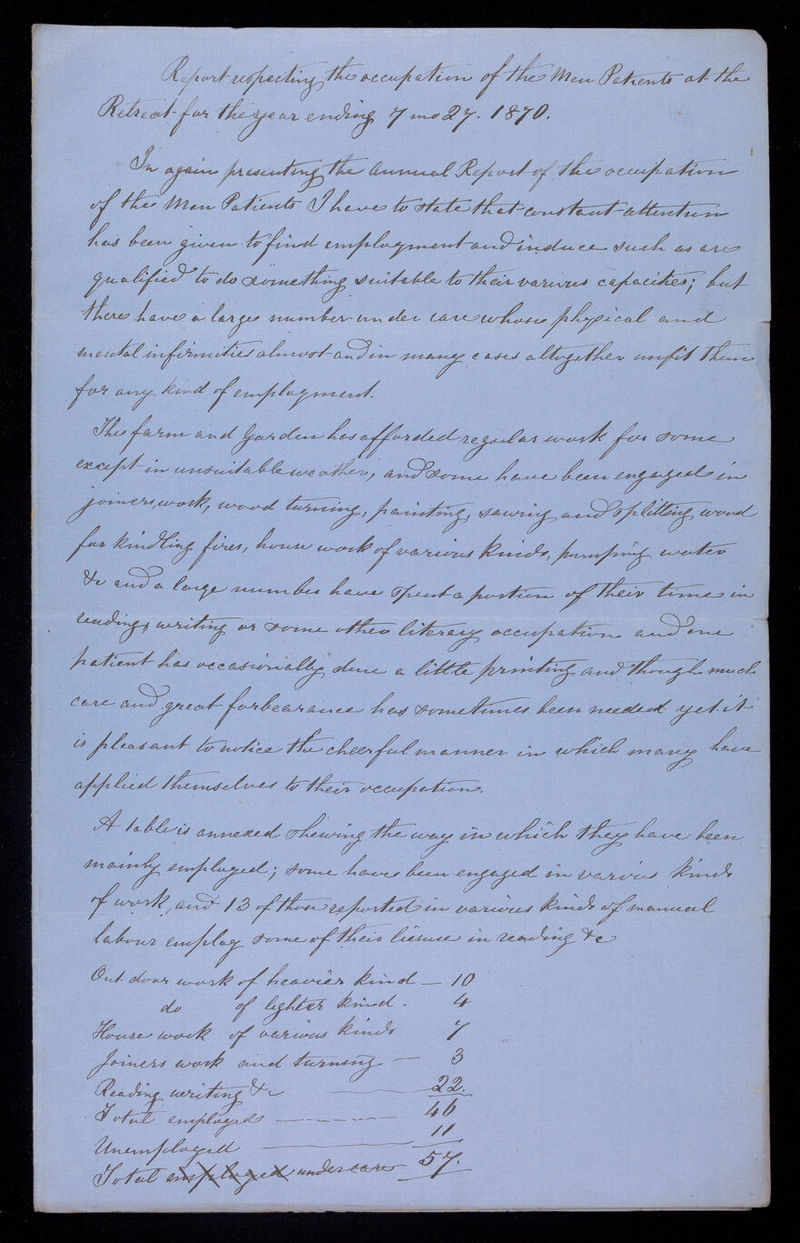 Report respecting the occupation of the Men Patients at the
Retreat for the year ending 7 mo 27. 1870.
In again presenting the Annual Report of the occupation
of the Men Patients I have to state that constant attention
has been given to find employment and induce such as are
qualified to do something suitable to their various capacities; but
there have a large number under care whose physical and
mental infirmities almost and in many cases altogether unfit them
for any kind of employment.
The farm and Garden has afforded regular work for some
except in unsuitable weather, and some have been engaged in
joiners work, wood turning, painting, sawing and splitting wood
for kindling fires, house work of various kinds, pumping water
&c and a large number have spent a portion of their time in
reading, writing or some other literary occupation and one
patient has occasionally done a little printing and though much
care and great forbearance has sometimes been needed yet it
is pleasant to notice the cheerful manner in which many have
applied themselves to their occupation.
A table is annexed shewing the way in which they have been
mainly employed; some have been engaged in various kinds
of work, and 13 of those reported in various kinds of manual
labour employ some of their liesure in reading &c
Out door work of heavier kind — 10
do of lighter kind - 4
House work of various kinds 7
Joiners work and turning — 3
Reading writing &c — 22.
Total employed — 46
Unemployed — 11
Total employed under care 57.